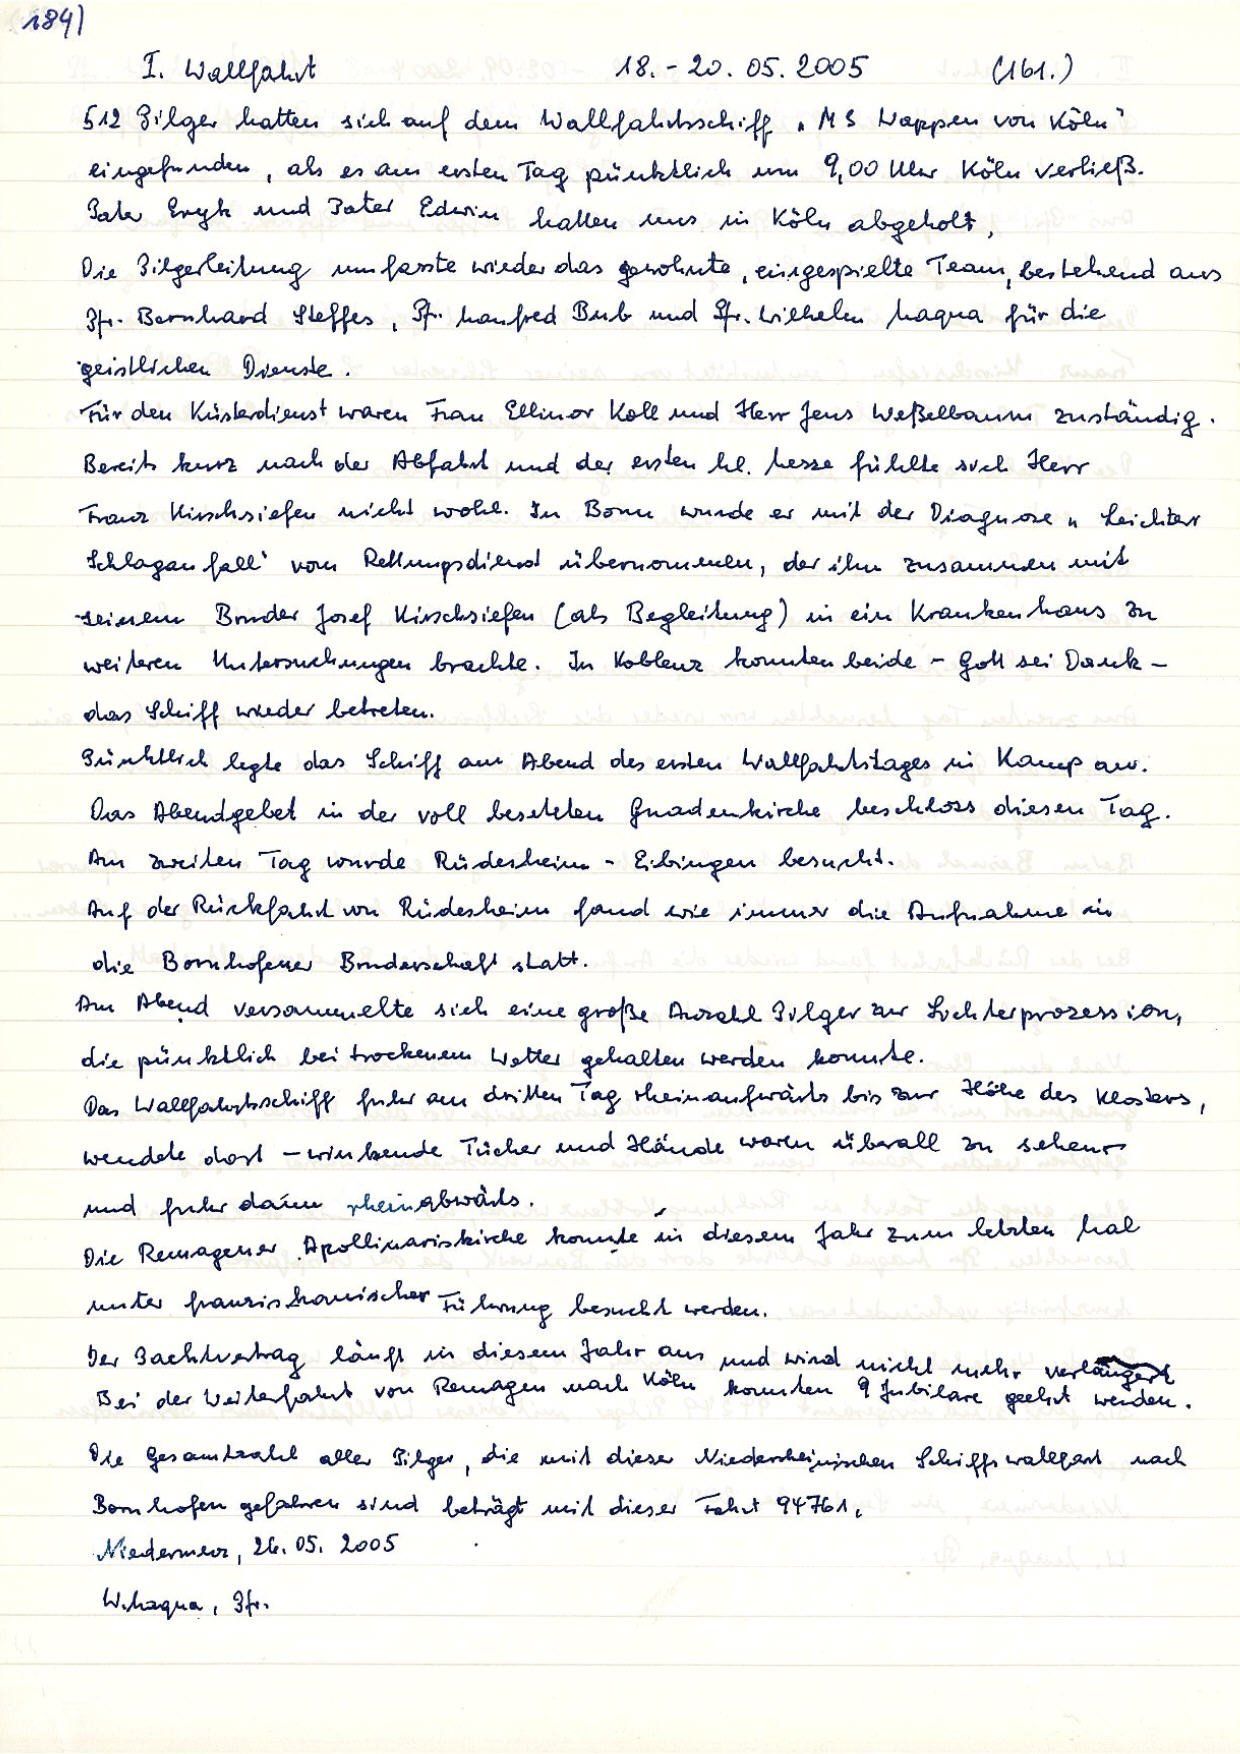 184)
I. Wallfahrt 18.-20.05.2005 (161.)
512 Pilger hatten sich auf dem Wallfahrtsschiff „MS Wappen von Köln"
eingefunden, als es am ersten Tag pünktlich um 9,00 Uhr Köln verließ.
Pater Eryk und Pater Edwin hatten uns in Köln abgeholt.
Die Pilgerleitung umfasste wieder das gewohnte, eingespielte Team, bestehend aus
Pfr. Bernhard Steffes, Pfr. Manfred Bub und Pfr. Wilhelm Maqua für die
geistlichen Dienste.
Für den Küsterdienst waren Frau Ellinor Koll und Herr Jens Weßelbaum zuständig.
Bereits kurz nach der Abfahrt und der ersten hl. Messe fühlte sich Herr
Franz Kirschsiefen nicht wohl. In Bonn wurde er mit der Diagnose „Leichter
Schlaganfall" vom Rettungsdienst übernommen, der ihn zusammen mit
seinem Bruder Josef Kirschsiefen (als Begleitung) in ein Krankenhaus zu
weiteren Untersuchungen brachte. In Koblenz konnten beide - Gott sei Dank -
das Schiff wieder betreten.
Pünktlich legte das Schiff am Abend des ersten Wallfahrtstages in Kamp an.
Das Abendgebet in der voll besetzten Gnadenkirche beschloss diesen Tag.
Am zweiten Tag wurde Rüdesheim - Eibingen besucht.
Auf der Rückfahrt von Rüdesheim fand wie immer die Aufnahme in
die Bornhofener Bruderschaft statt.
Am Abend versammelte sich eine große Anzahl Pilger zur Lichterprozession,
die pünktlich bei trockenem Wetter gehalten werden konnte.
Das Wallfahrtsschiff fuhr am dritten Tag rheinaufwärts bis zur Höhe des Klosters,
wendete dort - winkende Tücher und Hände waren überall zu sehen -
und fuhr dann rheinabwärts.
Die Remagener Apollinariskirche konnte in diesem Jahr zum letzten Mal
unter franziskanischer Führung besucht werden.
Der Pachtvertrag läuft in diesem Jahr aus und wird nicht mehr verlängert
Bei der Weiterfahrt von Remagen nach Köln konnten 9 Jubilare geehrt werden.
Die Gesamtzahl aller Pilger, die mit dieser Niederrheinischen Schiffswallfart nach
Bornhofen gefahren sind beträgt mit dieser Fahrt 94761.
Niedermerz, 26.05. 2005
W. Maqua, Pfr.